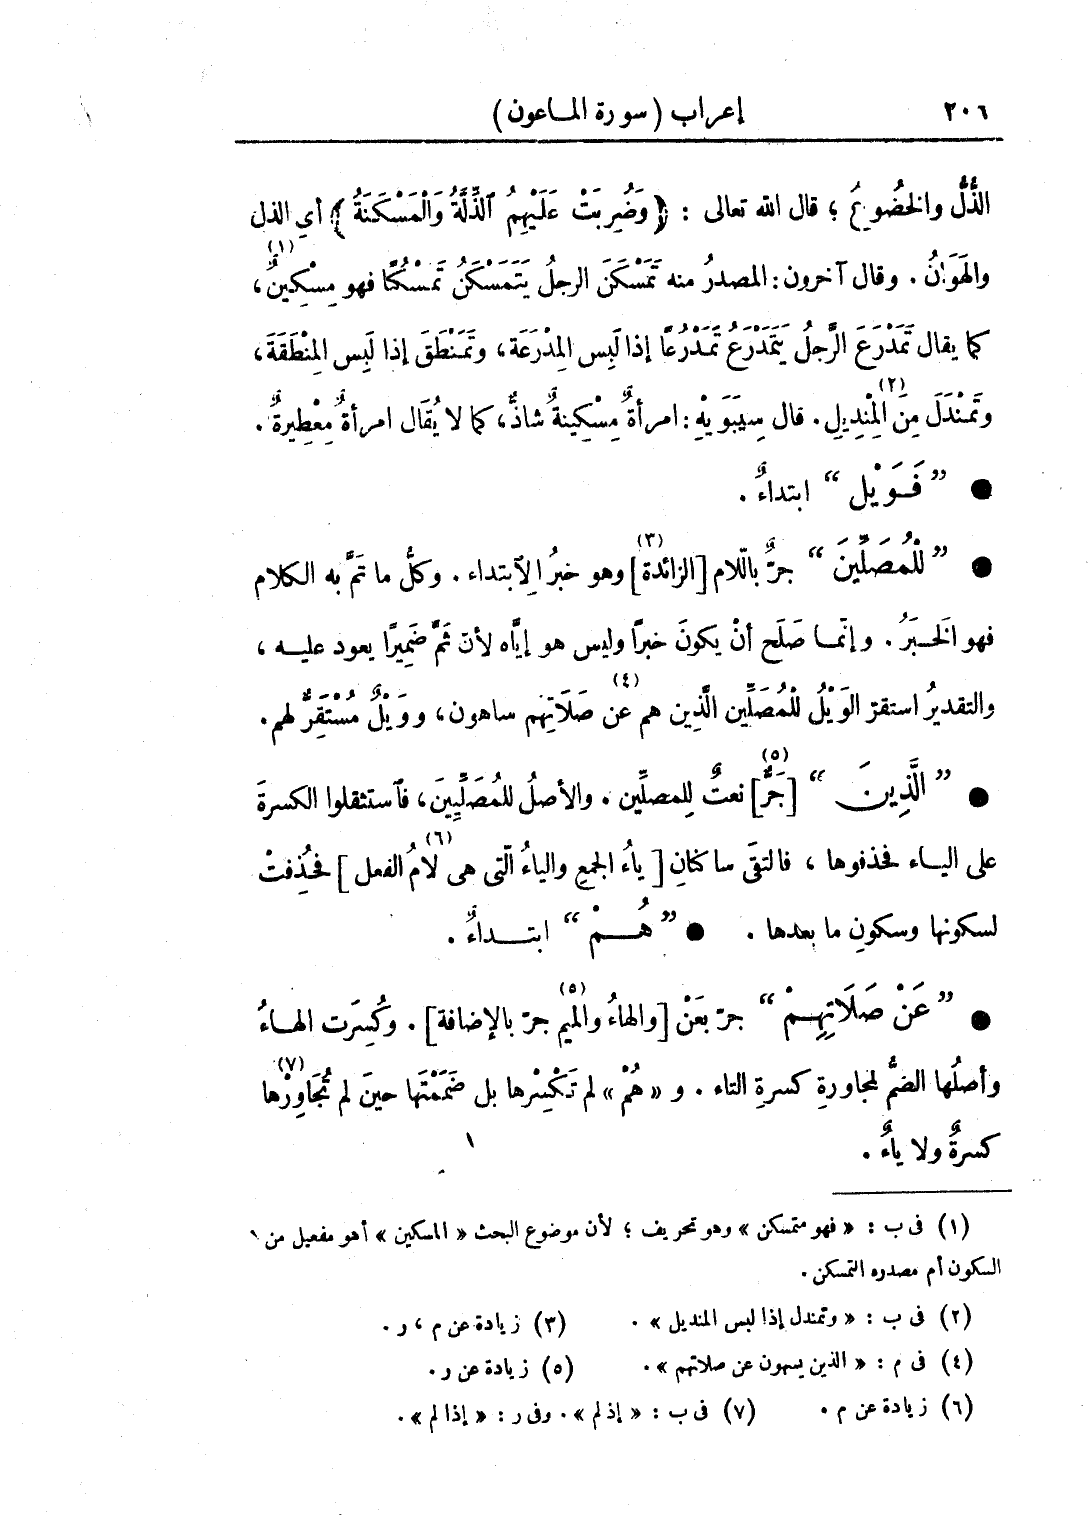 ٢٠٦ إعراب (سورة الماعون)
الذُّلُّ والخضُوعُ ؛ قال الله تعالى : ﴿ وَضُرِبَتْ عَلَيْهِمُ ٱلذِّلَّةُ وَالْمَسْكَنَةُ ﴾ أي الذل
والهَوَانُ . وقال آخرون : المصدرُ منه تَمَسْكَنَ الرجلُ يَتَمَسْكَنُ تَمَسْكُنًا فهو مِسْكِينٌ(١)،
كما يقال تَمَدْرَعَ الرَّجلُ يَتَمَدْرَعُ تَمَدْرُعًا إذا لَبِس المِدْرَعَة، وتَمَنْطَقَ إذا لَبِس المِنْطَقَةَ،
وتَمَنْدَلَ مِنَ المِنْدِيلِ(٢). قال سِيبَوَيْهِ : امرأةٌ مِسْكِينةٌ شاذٌّ، كما لا يُقَال امرأةٌ مِعْطِيرةٌ .
● ”فَوَيْل“ ابتداءٌ .
● ”لْمُصَلِّينَ“ جرٌّ باللّام [الزائدة](٣) وهو خبرُ الِٱبتداء . وكلُّ ما تَمَّ به الكلام
فهو الخَبَرُ . وإنّما صَلَح أنْ يكونَ خبرًا وليس هو إيَّاه لأنّ ثَمَّ ضَمِيرًا يعود عليه ،
والتقديرُ استقرّ الوَيْلُ للْمُصَلِّين الَّذِين هم عن صَلَاتِهِم(٤) ساهون، ووَيْلٌ مُسْتَقِرٌّ لهم.
● ”الَّذِينَ“ [جَرٌّ](٥) نعتٌ لِلمصلِّين . والأصلُ للمُصَلِّيِينَ، فٱستثقلوا الكسرةَ
على الياء فحذفوها ، فالتقَى ساكنانِ [ياءُ الجمعِ والياءُ الّتى هى لامُ(٦) الفعل] فحُذِفتْ
لسكونها وسكونِ ما بعدها . ● ”هُمْ“ ابتداءٌ .
● ”عَنْ صَلَاتِهِمْ“ جرّ بَعَنْ [والهاءُ والميم(٥) جرّ بالإضافة] . وكُسِرَت الهاءُ
وأصلُها الضمُّ لمجاورةِ كسرةِ التاء . و «هُمْ» لم تَكْسِرْها بل ضَمَمْتَها حينَ لم تُجَاوِرْها(٧)
كسرةٌ ولا ياءٌ .
(١) فى ب : «فهو متمسكن» وهو تحريف ؛ لأن موضوع البحث «المسكين» أهو مفعيل من
السكون أم مصدره التمسكن.
(٢) فى ب : «وتمندل إذا لبس المنديل» . (٣) زيادة عن م ، ر .
(٤) فى م : «الذين يسهون عن صلاتهم» . (٥) زيادة عن ر .
(٦) زيادة عن م . (٧) فى ب : «إذ لم» . وفى ر : «إذا لم» .